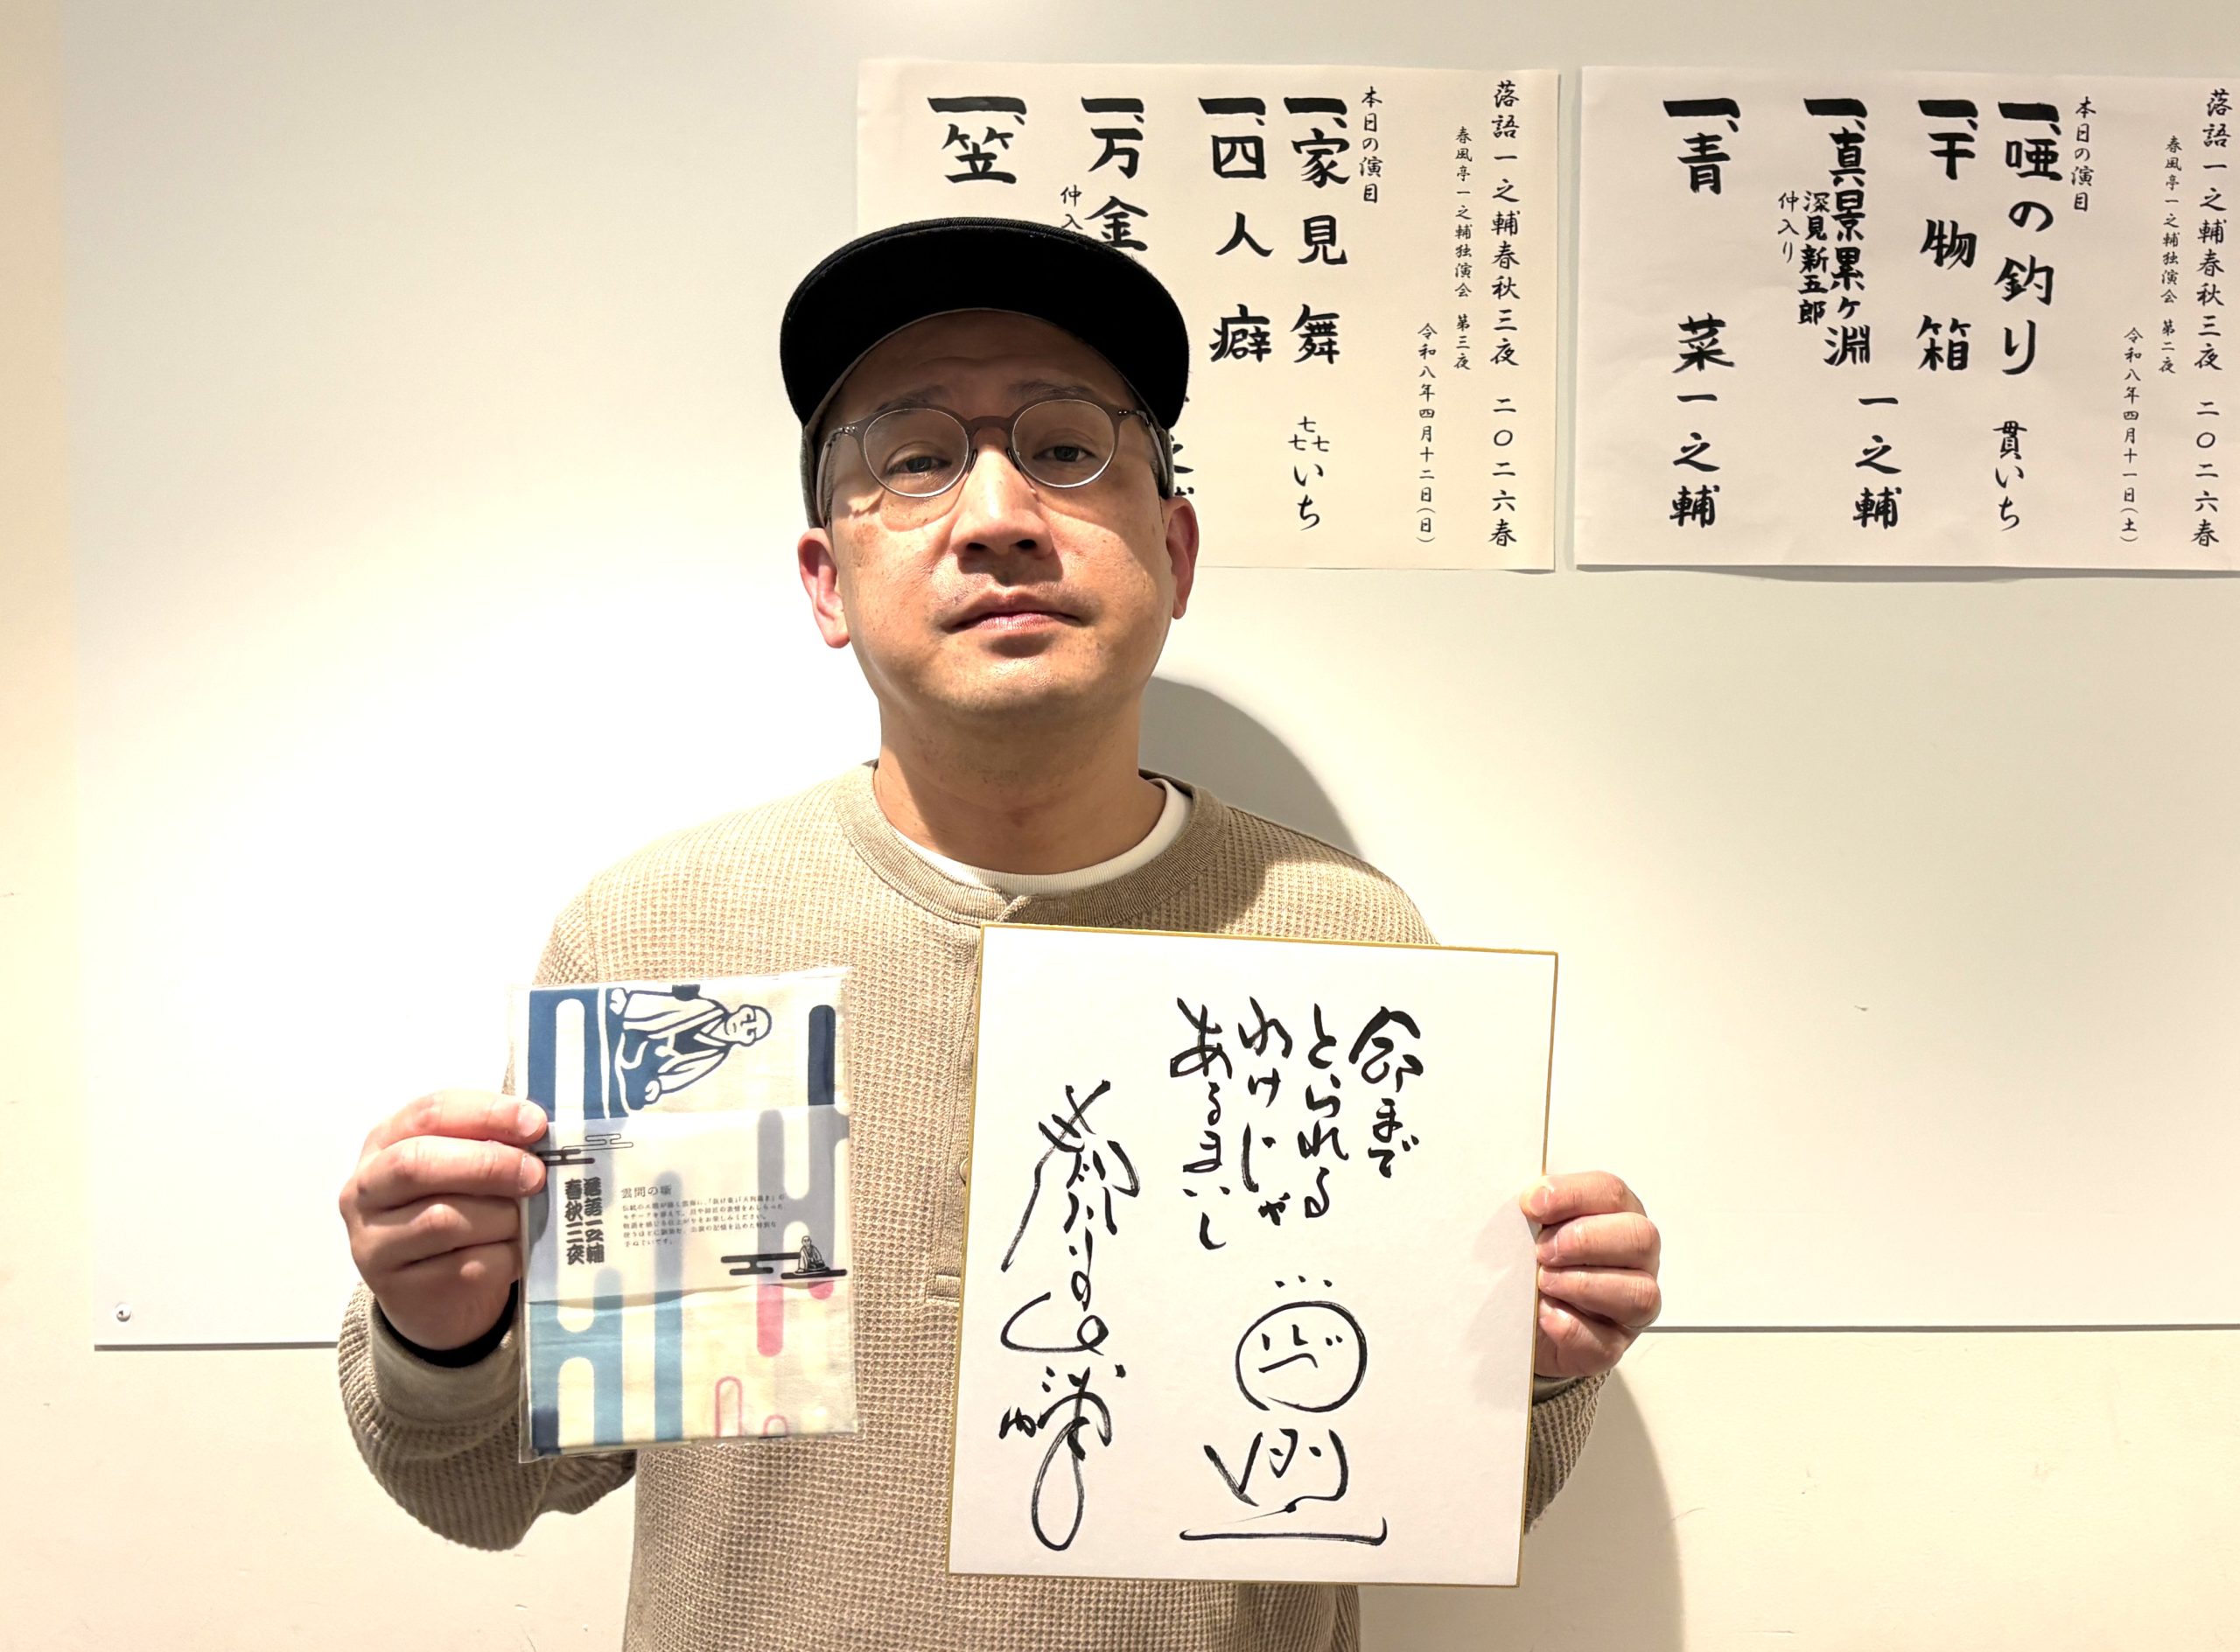 落語一之輔春秋三夜 二〇二六春
春風亭一之輔独演会 第二夜
令和八年四月十一日(土)
本日の演目
一、唖の釣り 貫いち
一、干物箱
一、真景累ケ淵 一之輔
深見新五郎
仲入り
一、青菜 一之輔
落語一之輔春秋三夜 二〇二六春
春風亭一之輔独演会 第三夜
令和八年四月十二日(日)
本日の演目
一、家見舞 㐂いち
一、四人癖
一、万金
仲入
一、笠
落語一之輔
春秋三夜
雲間の噺
命まで
とられる
わけじゃ
あるまいし
春風亭一之輔